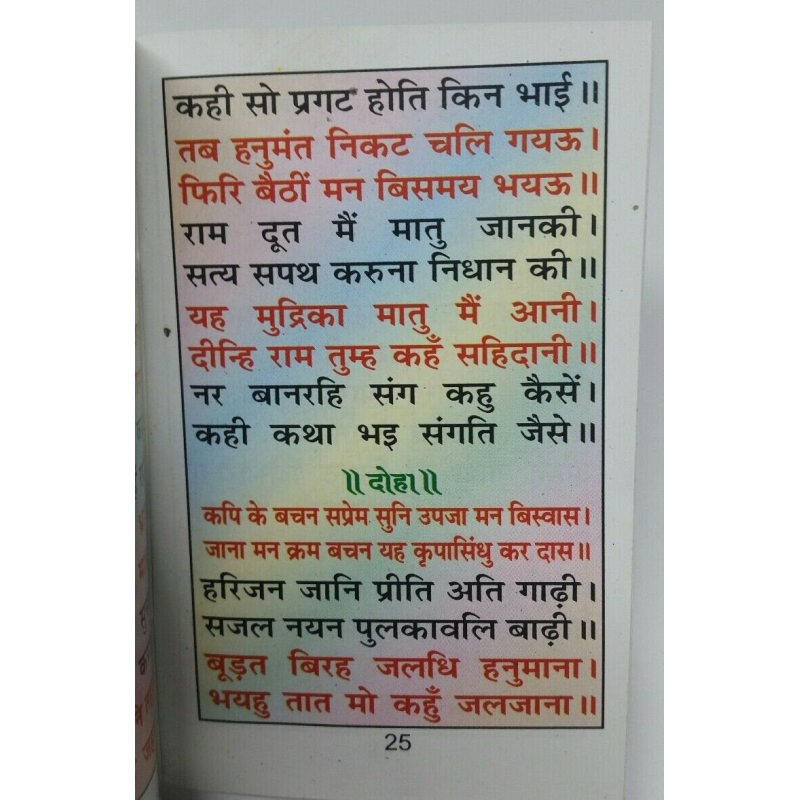 कही सो प्रगट होति किन भाई॥
तब हनुमंत निकट चलि गयऊ।
फिरि बैठीं मन बिसमय भयऊ॥
राम दूत मैं मातु जानकी।
सत्य सपथ करुना निधान की॥
यह मुद्रिका मातु मैं आनी।
दीन्हि राम तुम्ह कहँ सहिदानी॥
नर बानरहि संग कहु कैसें।
कही कथा भइ संगति जैसे॥
॥दोहा॥
कपि के बचन सप्रेम सुनि उपजा मन बिस्वास।
जाना मन क्रम बचन यह कृपासिंधु कर दास॥
हरिजन जानि प्रीति अति गाढ़ी।
सजल नयन पुलकावलि बाढ़ी॥
बूड़त बिरह जलधि हनुमाना।
भयहु तात मो कहुँ जलजाना॥
25